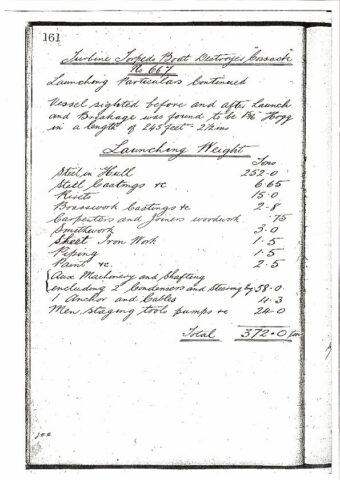 161
Turbine Torpedo Boat Destroyer "Cossack"
No 667
Launching Particulars Continued
Vessel sighted before and after Launch
and Breakage was found to be 1/16" Hogg
in a length of 245 feet - 2½ ins
Launching Weight
Tons
Steel in Hull 252.0
Steel Castings &c 6.65
Rivets 15.0
Brasswork Castings &c 2.8
Carpenters and Joiners woodwork .75
Smithwork 3.0
Sheet Iron Work 1.5
Piping 1.5
Paint &c. 2.5
Aux Machinery and Shafting
including 2 Condensers and Steering Eng 58.0
1 Anchor and Cables 4.3
Men, staging tools pumps &c 24.0
Total 372.0 tons